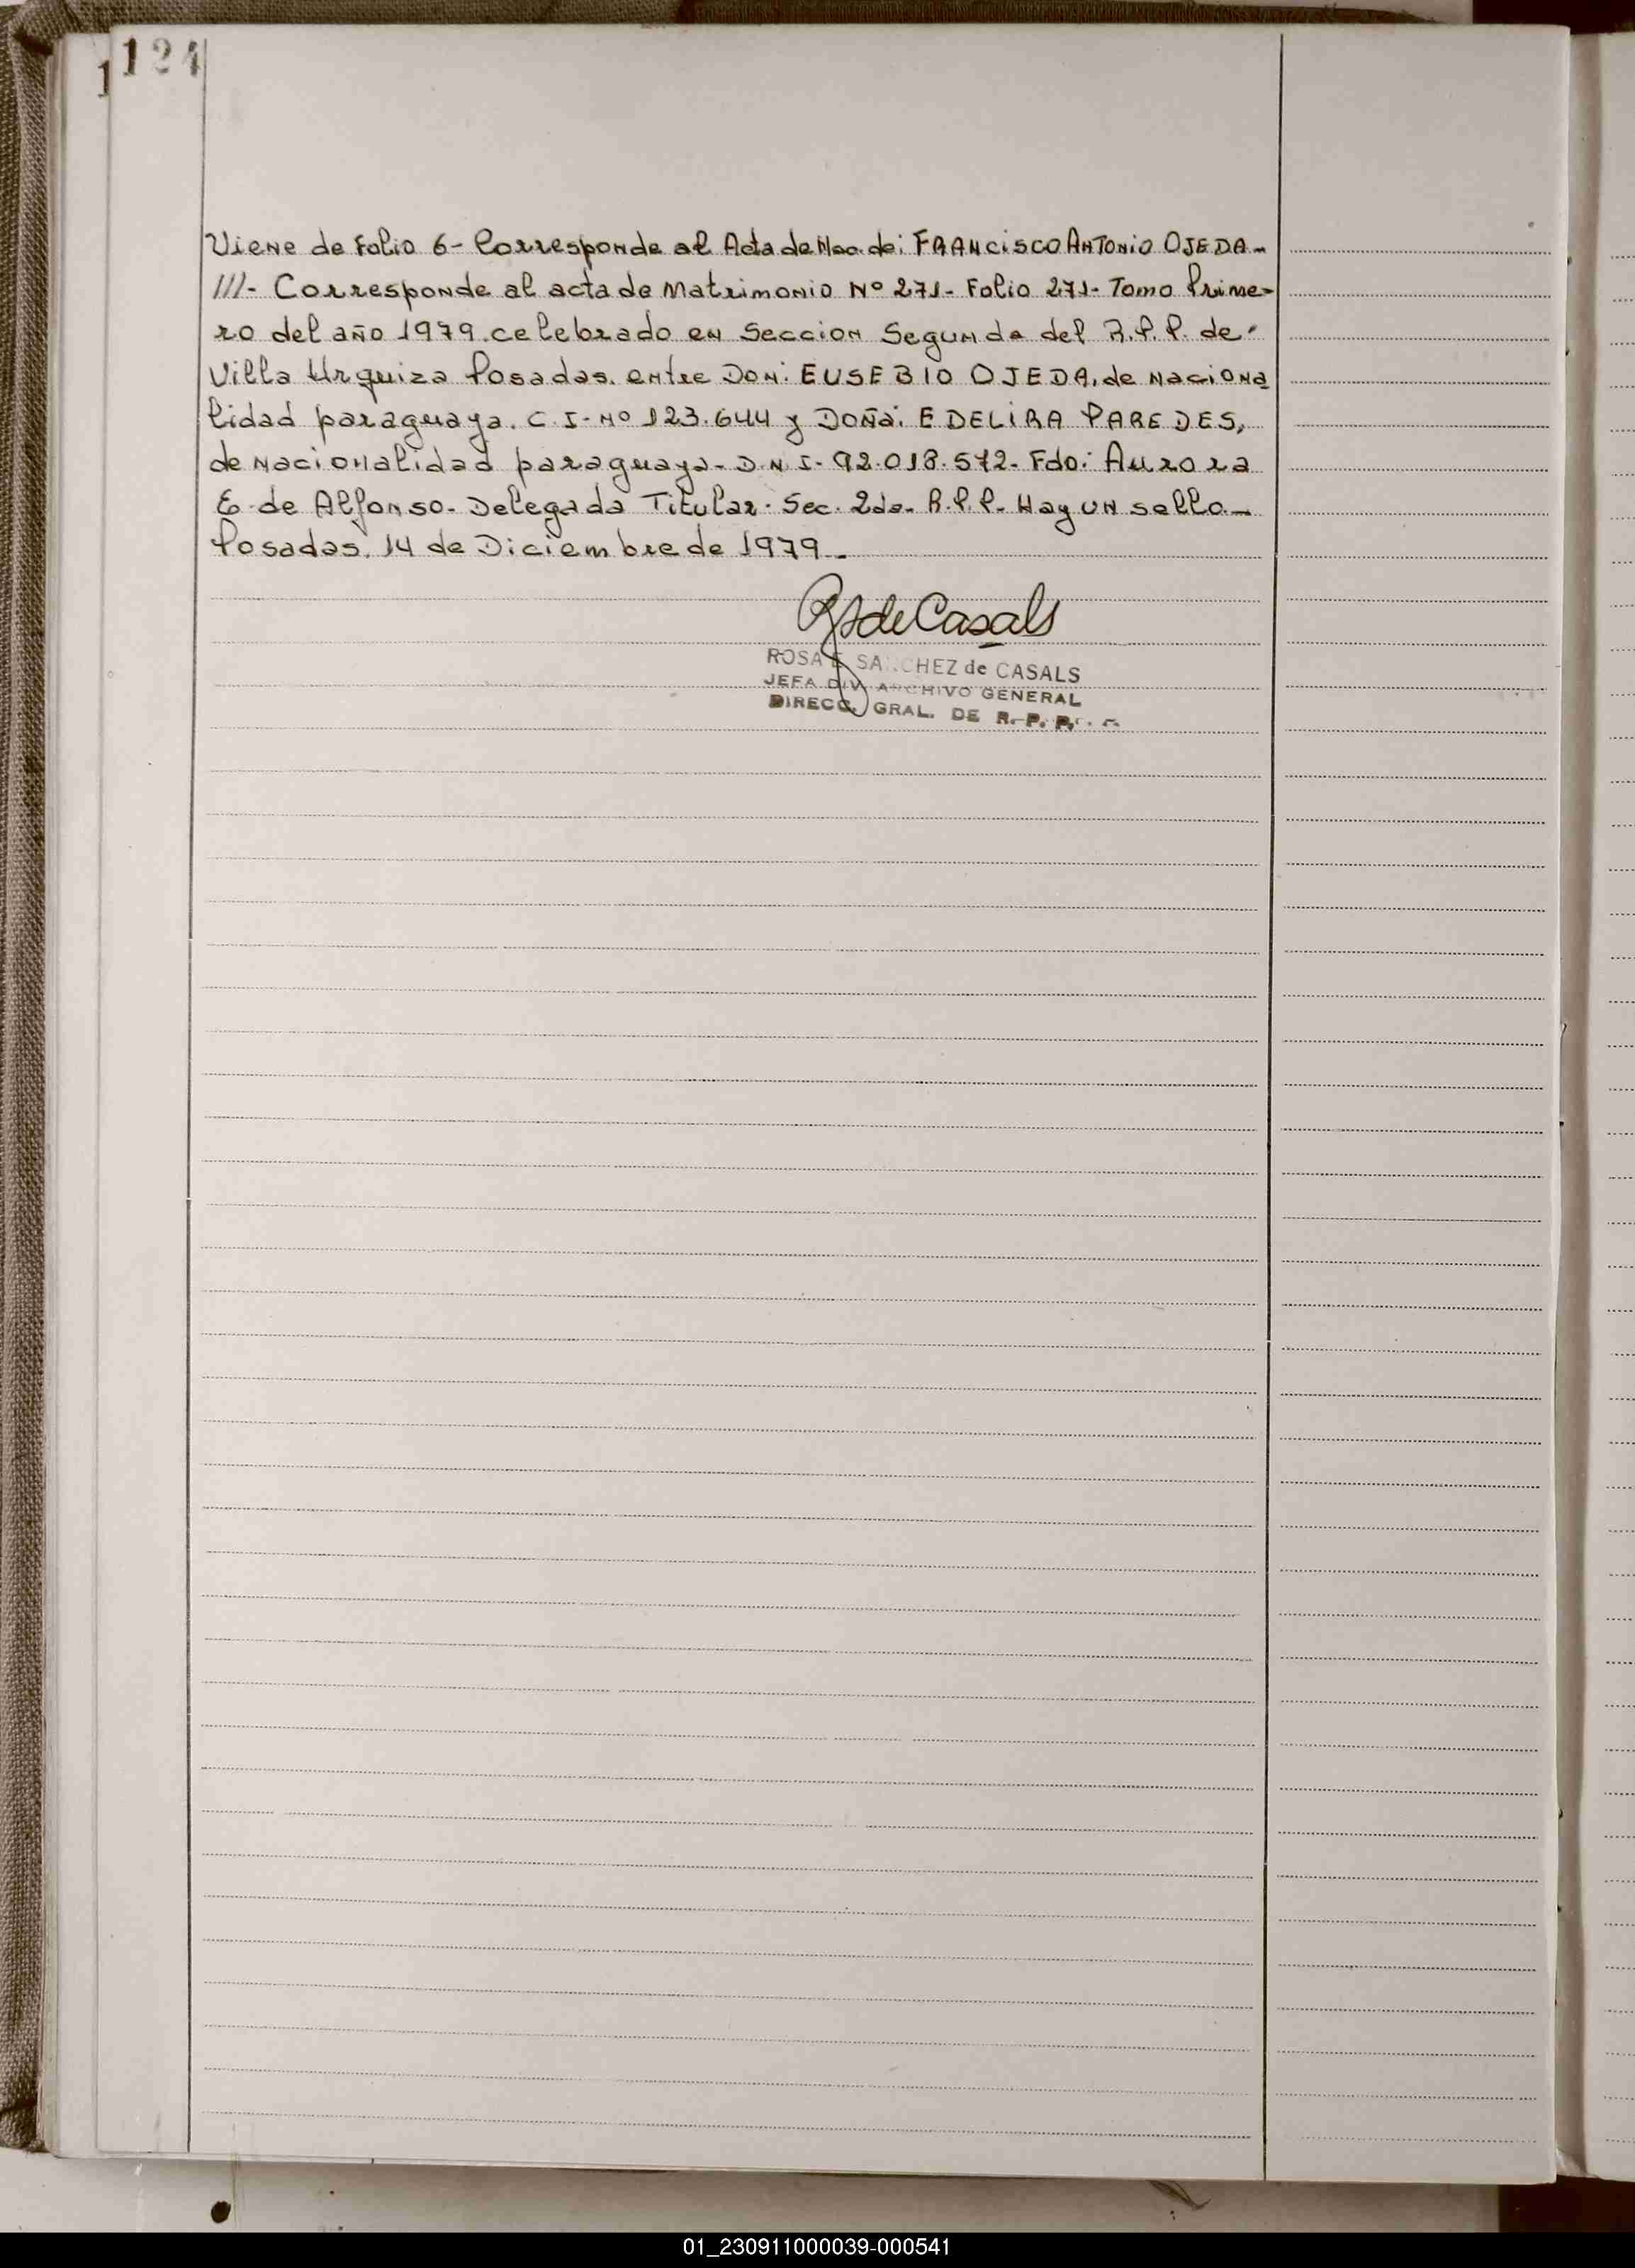 124
1
Viene de Folio 6- Corresponde al Acta de Nac. de: FRANCISCO ANTONIO OJEDA-
///- Corresponde al acta de Matrimonio Nº 271- Folio 271- Tomo Prime-
ro del año 1979. celebrado en Seccion Segunda del R.P.P. de
Villa Urquiza Posadas. entre Don: EUSEBIO OJEDA, de naciona
lidad paraguaya. C.I-Nº 123.644 y Doña: EDELIRA PAREDES,
de nacionalidad paraguaya- D.N.I- 92.018.572- Fdo: Aurora
E. de Alfonso- Delegada Titular. Sec. 2da- R.P.P- Hay un sello.-
Posadas, 14 de Diciembre de 1979.-
RSdeCasals
ROSA E. SANCHEZ de CASALS
JEFA DIV. ARCHIVO GENERAL
DIRECC. GRAL. DE R. P. P.
01_230911000039-000541